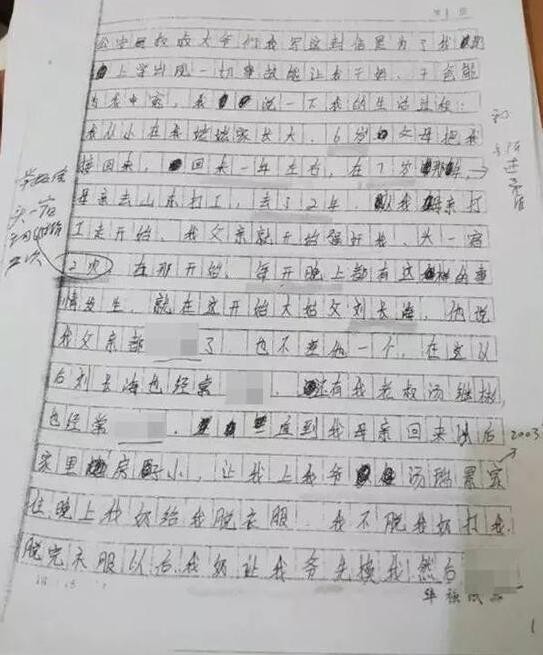 第1页
公安局叔叔大爷们我写这封信是为了我
上学出现一切事故能让我干妈、干爸能
为我申冤，我说一下我的生活过程：
我从小在我姥姥家长大，6岁父母把我
接回来，回来一年左右，在7岁那年，
母亲去山东打工，去了2年，从我母亲打
工走开始，我父亲就开始强奸我，头一宿
2次，在那开始，每天晚上都有这样的事
情发生，就在这开始大姑父刘长海，他说
我父亲都了，也不差他一个，在这以
后刘长海也经常，还有我老叔汤继彬，
也经常，一直到我母亲回来以后 2003
家里房子小，让我上我爷汤瑞景家
住晚上我奶给我脱衣服，我不脱我奶打我，
脱完衣服以后我奶让我爷先摸我然后
1